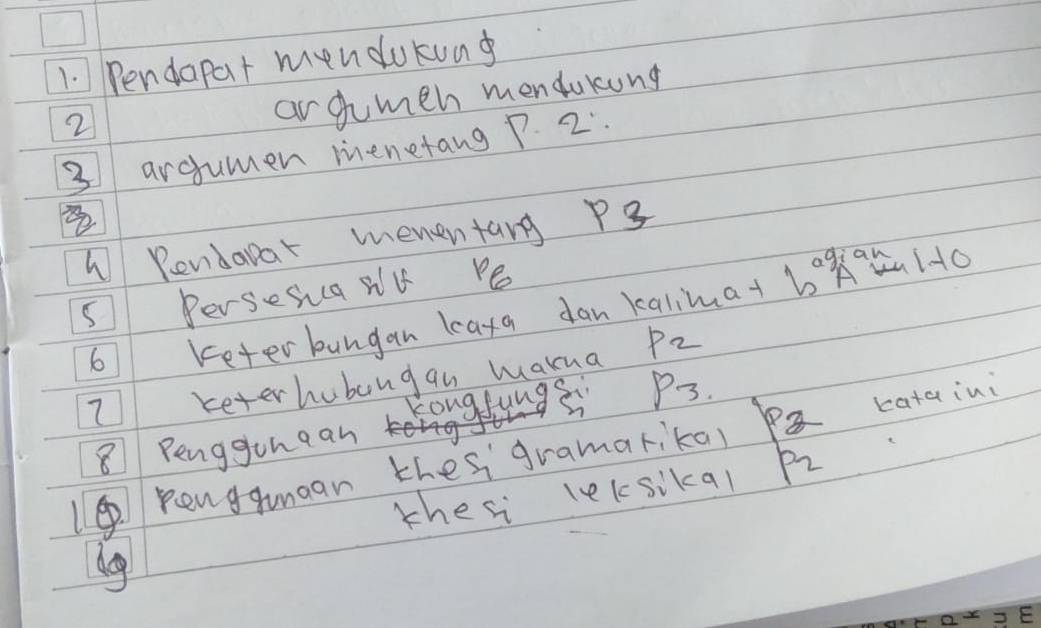 1. Pendapat mendukung
2 argumen mendukung
3 argumen menetang P. 2.
4 Pendapat menentang P3
5 Persesua P6
6 keterbungan kata dan kalimat bagian A
7 keterhubungan makna P2
8 Penggunaan kongjungsi P3.
penggunaan khesi gramatikal P2 kata ini
khesi leksikal P2